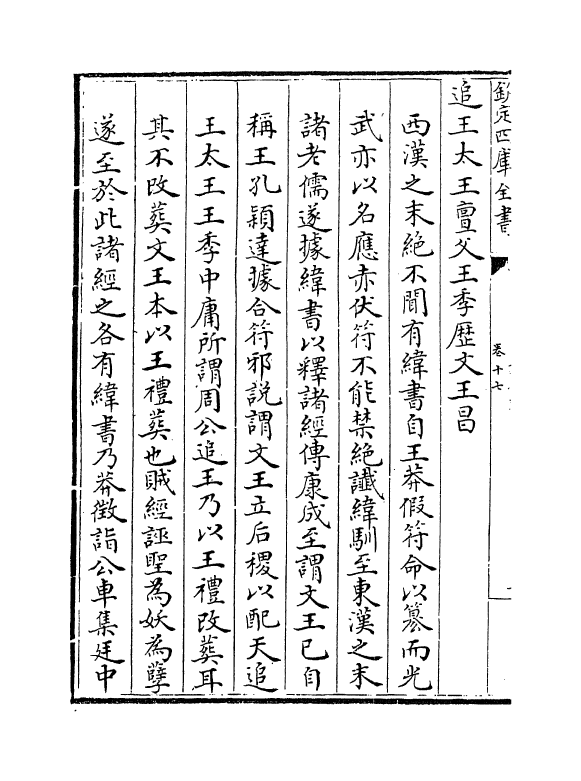 欽定四庫全書
卷十七
追王太王亶父王季歴文王昌
西漢之末絶不聞有緯書自王莽假符命以簒而光
武亦以名應赤伏符不能禁絶讖緯馴至東漢之末
諸老儒遂據緯書以釋諸經傳康成至謂文王已自
稱王孔穎達據合符邪説謂文王立后稷以配天追
王太王王季中庸所謂周公追王乃以王禮改葬耳
其不改葬文王本以王禮葬也賊經誣聖為妖為孽
遂至於此諸經之各有緯書乃莽徵詣公車集廷中